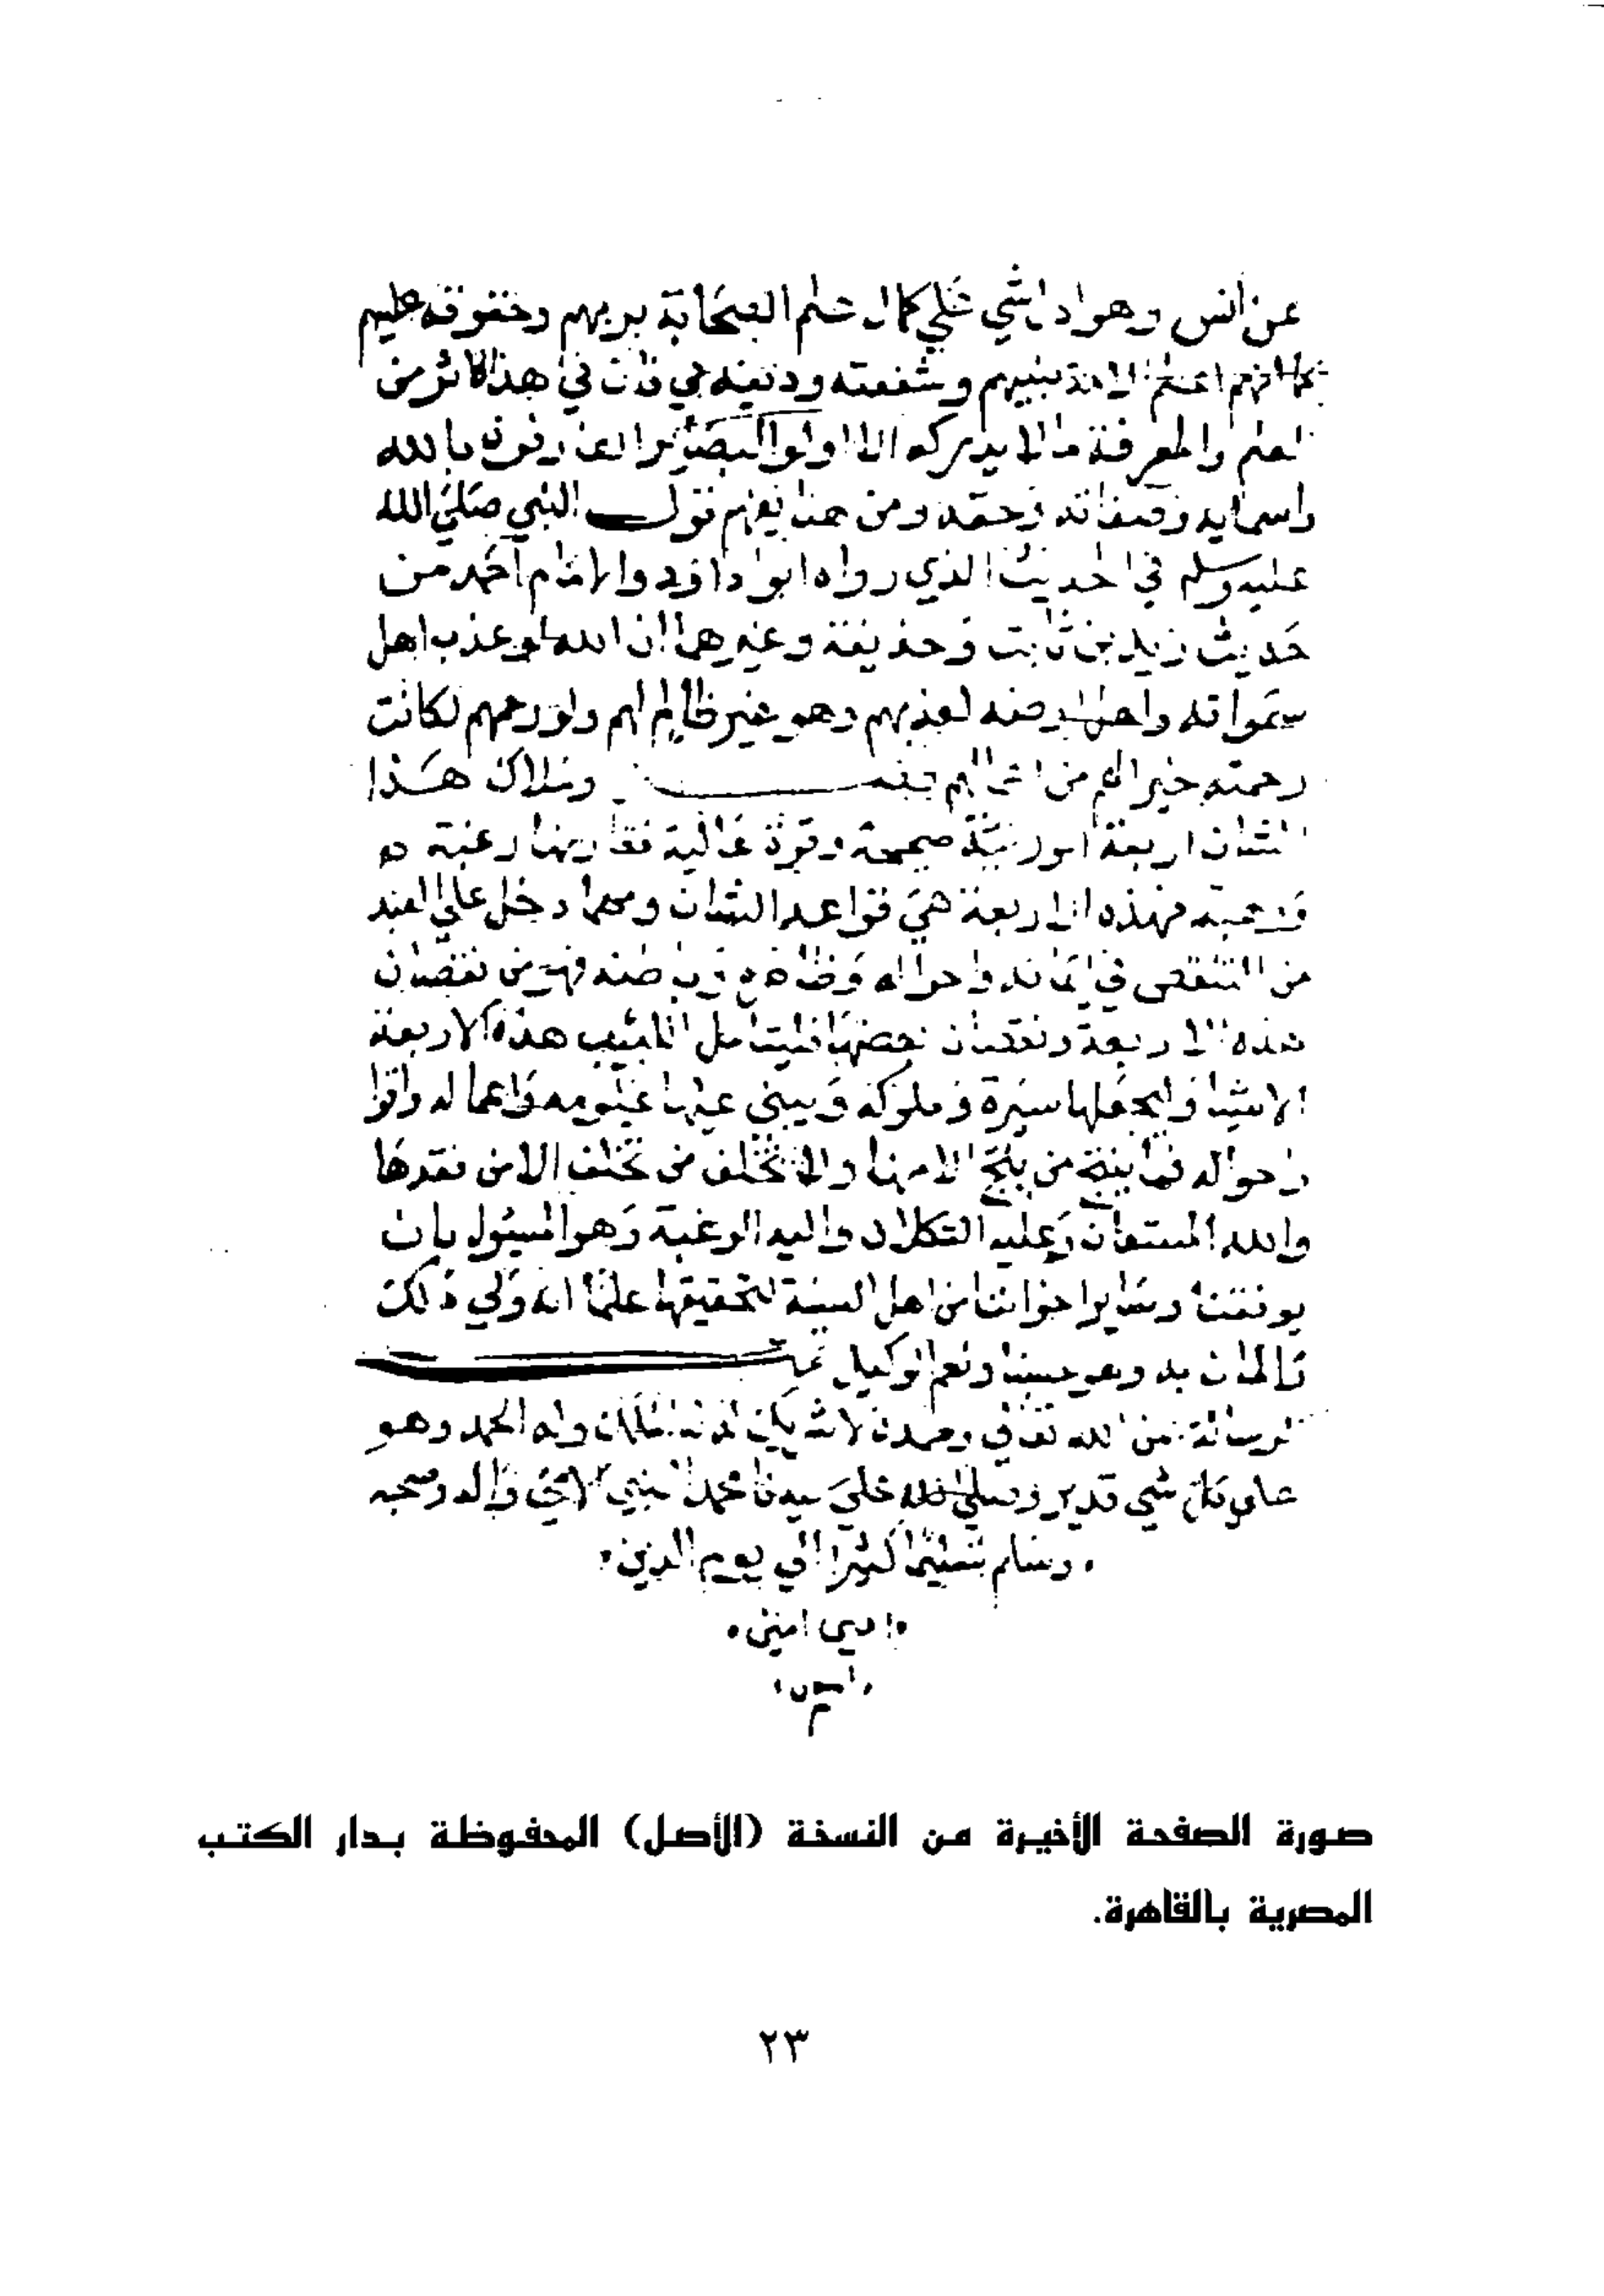 عن انس وهو ادل شي علي كمال علم الصحابة بربهم وحقوقه عليهم
كما انهم اعلم الامة بنبيهم وسنته ودينه فان في هذا الاثر من
العلم والمعرفة ما لا يدركه الا اولو البصائر العارفون بالله
واسمايه وصفاته وحقه ومن هنا يفهم قول النبي صلي الله
عليه وسلم في الحديث الذي رواه ابو داود والامام احمد من
حديث زيد بن ثابت وحذيفة وغيرهما ان الله لو عذب اهل
سمواته واهل ارضه لعذبهم وهو غير ظالم لهم ولو رحمهم لكانت
رحمته خير الهم من اعمالهم وملاك هذا
الشان اربعة امور نية صحيحة وقوة عالية يقارنها رغبة و
رهبة فهذه الاربعة هي قواعد الشان ومهما دخل علي العبد
من النقص في ايمانه واحواله وظاهره وباطنه فهو من نقصان
هذه الاربعة ونقصان بعضها فليتامل اللبيب هذه الاربعة
الاشيا وليجعلها سيره وسلوكه ويبني عليها علومه واعماله واقوا
واحواله فما نتج من نتج الا منها ولا تخلف من تخلف الا من فقدها
والله المستعان وعليه التكلان واليه الرغبة وهو المسئول بان
يوفقنا وساير اخواننا من اهل السنة لتحقيقها علما انه ولي ذلك
والمان به وهو حسبنا ونعم الوكيل تمت
الرسالة من الله تعالي وحده لا شريك له له الملك وله الحمد وهو
علي كل شي قدير وصلي الله علي سيدنا محمد النبي الامي واله وصحبه
وسلم تسليما كثيرا الي يوم الدين
امين
صورة الصفحة الأخيرة من النسخة (الأصل) المحفوظة بدار الكتب
المصرية بالقاهرة.
٢٣